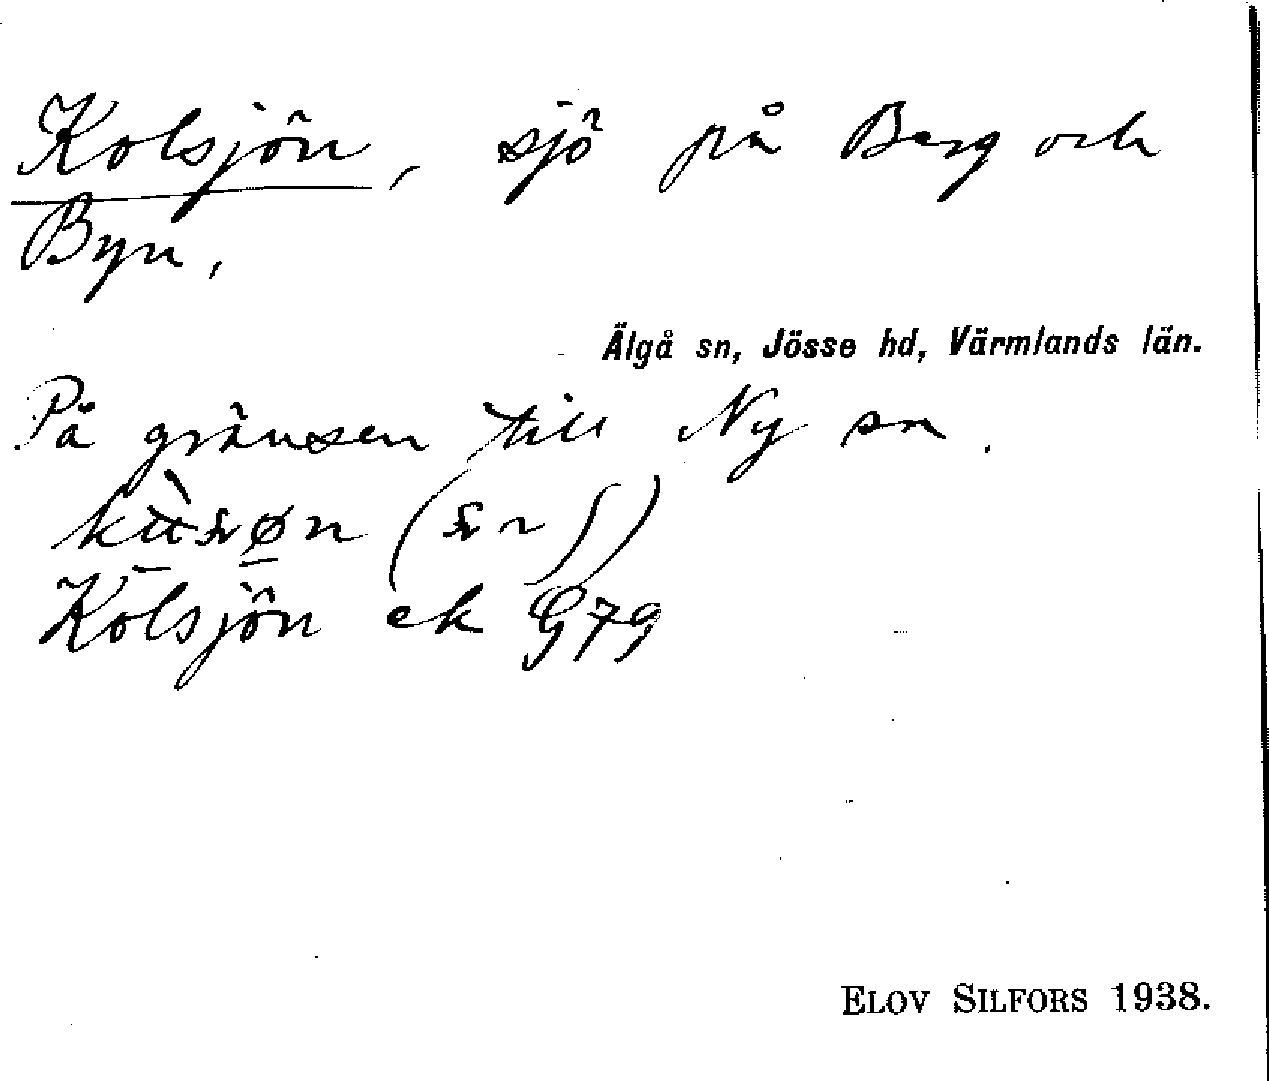 Kolsjön, sjö på Berg och
Byn,
Älgå sn, Jösse hd, Värmlands län.
På gränsen till Ny sn.
(
~ ʃ)
Kolsjön ek G79
ELOV SILFORS 1938.